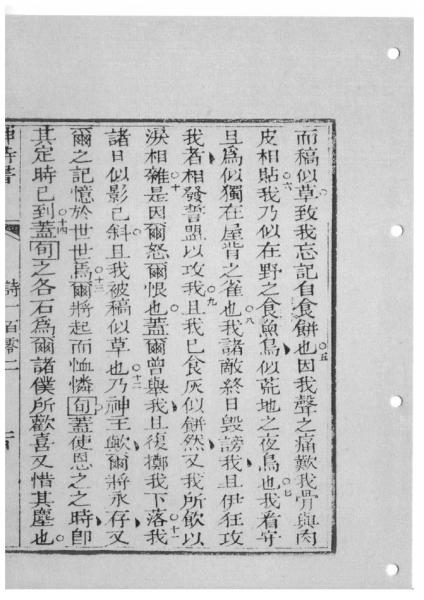 而稿似草致我忘記自食餅也○五因我聲之痛歎我骨與肉
皮相貼○六我乃似在野之食魚鳥似荒地之夜鳥也○七我看守
且為似獨在屋背之雀也○八我諸敵終日毀謗我且伊狂攻
我者相發誓盟以攻我○九且我已食灰似餅然又我所飲以
淚相雜○十是因爾怒爾恨也蓋爾曾舉我且復擲我下落○十一我
諸日似影已斜且我被稿似草也○十二乃神王歟爾將永存又
爾之記憶於世世焉○十三爾將起而恤憐旬蓋使恩之之時即
其定時已到○十四蓋旬之各石為爾諸僕所歡喜又惜其塵也
神詩書 詩一百零二